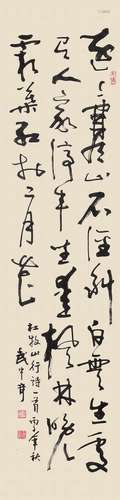 遠上寒山石徑斜白雲生處
有人家停車坐愛楓林晚
霜葉紅於二月花
杜牧山行詩一首丙子年秋
武中奇